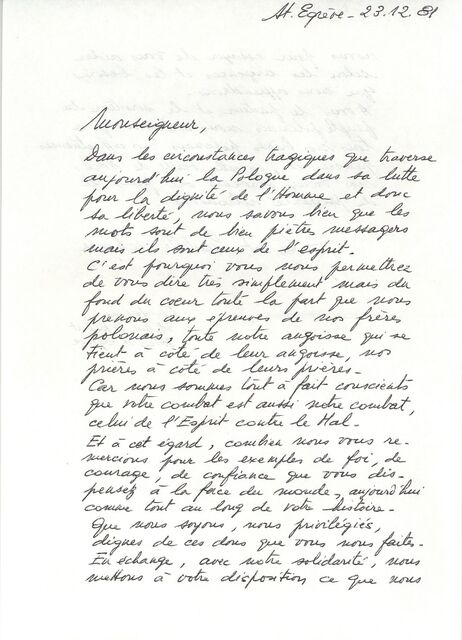 St. Egrève - 23.12.81
Monseigneur,
Dans les circonstances tragiques que traverse
aujourd'hui la Pologne dans sa lutte
pour la dignité de l'Homme et donc
sa liberté, nous savons bien que les
mots sont de bien piètres messagers
mais ils sont ceux de l'esprit.
C'est pourquoi vous nous permettrez
de vous dire très simplement mais du
fond du coeur toute la part que nous
prenons aux épreuves de nos frères
polonais, toute notre angoisse qui se
tient à côté de leur angoisse, nos
prières à côté de leurs prières-
Car nous sommes tout à fait conscients
que votre combat est aussi notre combat,
celui de l'Esprit contre le Mal-
Et à cet égard, combien nous vous re-
mercions pour les exemples de foi, de
courage, de confiance que vous dis-
pensez à la face du monde, aujourd'hui
comme tout au long de votre histoire-
Que nous soyons, nous privilégiés,
dignes de ces dons que vous nous faites-
En échange, avec notre solidarité, nous
mettons à votre disposition ce que nous